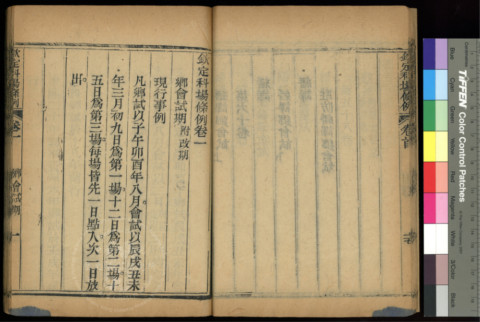 欽定科場條例卷一
鄉會試期附改期
現行事例
凡鄉試以子午卯酉年八月會試以辰戌丑未
年三月初九日為第一場十二日為第二場十
五日為第三場每場皆先一日點入次一日放
出
欽定科場條例
卷一
鄉會試期
一
欽定科場條例
卷首
TIFFEN Color Control Patches
Blue
Cyan
Green
Yellow
Red
Magenta
White
3/Color
Black